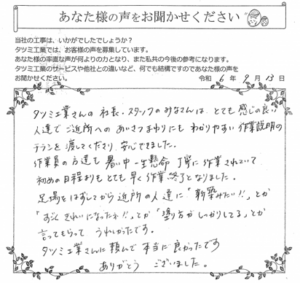 あなた様の声をお聞かせください
当社の工事は、いかがでしたでしょうか?
タツミ工業では、お客様の声を募集しています。
あなた様の率直な声が何よりの力となり、また私共の今後の参考になります。
タツミ工業のサービスや他社との違いなど、何でも結構ですのであなた様の声を
お聞かせください。 令和 6年 9月 13日
タツミ工業さんの 社長・スタッフのみなさんは、とても感じの良い
人達で ご近所への あいさつまわりにも わかりやすい 作業説明の
チラシを 渡してくださり 安心できました。
作業員の方達も 暑い中 一生懸命 丁寧に作業されていて
初めの日程よりも とても早く 作業終了となりました。
足場をはずしてから 近所の人達に「新築みたい!!」とか
「すごくきれいになったネ!!」とか「塗り方がしっかりしてる」とか
言ってもらって うれしかったです。
タツミ工業さんに 頼んで 本当に良かったです
ありがとう ございました。